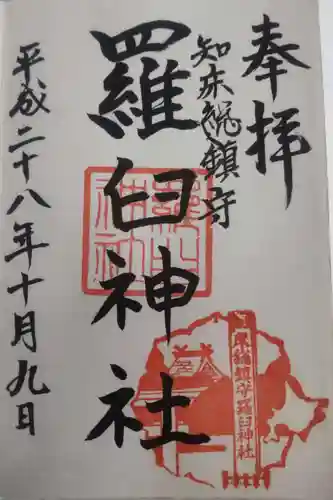 奉拝
知床総鎮守
羅臼神社
平成二十八年十月九日
羅臼神社
知床総鎮守羅臼神社